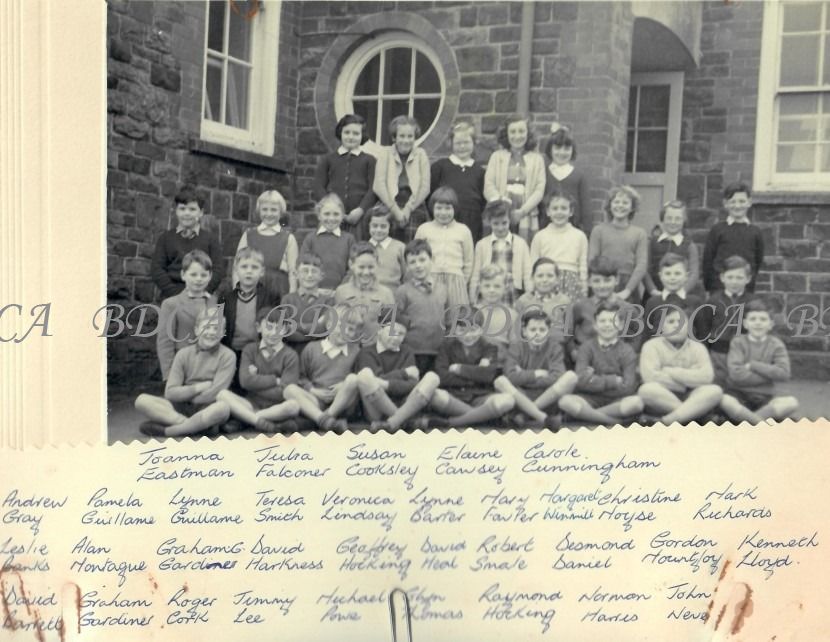 BDCA BDCA BDCA BDCA BDCA BDCA BDCA
Joanna Julia Susan Elaine Carole.
Eastman Falconer Cooksley Cawsey Cunningham
Andrew Pamela Lynne Teresa Veronica Lynne Mary Margaret Christine Mark
Gray Guillame Guillame Smith Lindsay Barter Fowler Winmill Moyse Richards
Leslie Alan Graham G. David Geoffrey David Robert Desmond Gordon Kenneth
Banks Montague Gardener Harkness Hocking Heal Smale Daniel Mountjoy Lloyd.
David Graham Roger Jimmy Michael Glyn Raymond Norman John
Barrett Gardiner Cork Lee Powe Thomas Hocking Harris